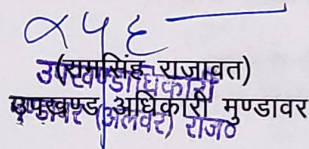 (रामसिंह राजावत)
उपखण्ड अधिकारी मुण्डावर
उपखण्ड अधिकारी
मुण्डावर (अलवर) राज०